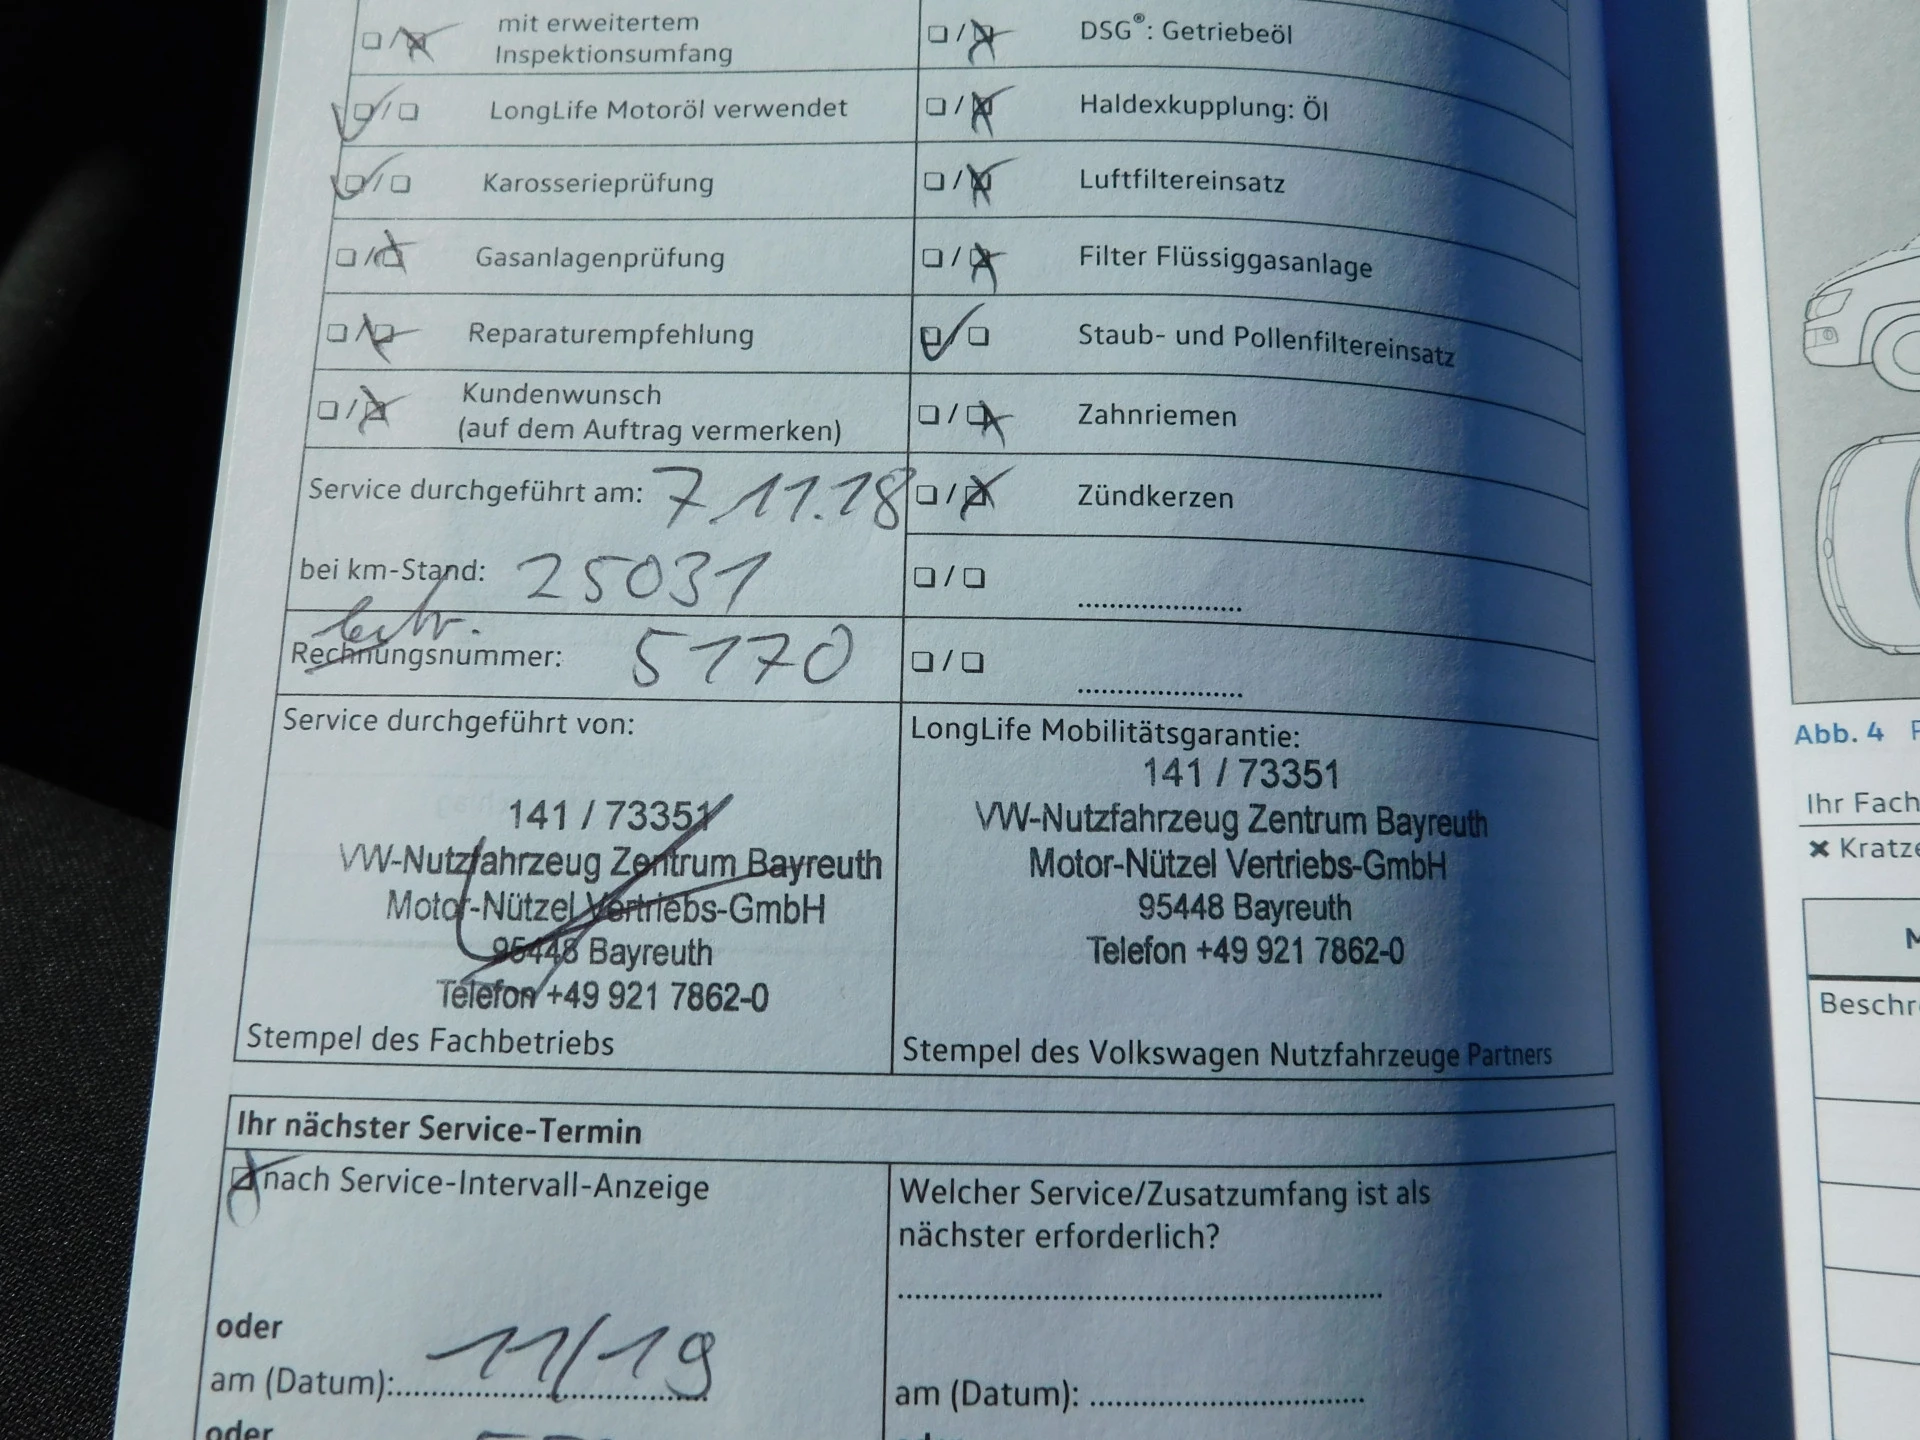 mit erweitertem
Inspektionsumfang
LongLife Motoröl verwendet
Karosserieprüfung
Gasanlagenprüfung
Reparaturempfehlung
Kundenwunsch
(auf dem Auftrag vermerken)
Service durchgeführt am: 7.11.18
bei km-Stand: 25031
Rechnungsnummer: 5170
Service durchgeführt von:
141 / 73351
VW-Nutzfahrzeug Zentrum Bayreuth
Motor-Nützel Vertriebs-GmbH
95448 Bayreuth
Telefon +49 921 7862-0
Stempel des Fachbetriebs
DSG®: Getriebeöl
Haldexkupplung: Öl
Luftfiltereinsatz
Filter Flüssiggasanlage
Staub- und Pollenfiltereinsatz
Zahnriemen
Zündkerzen
LongLife Mobilitätsgarantie:
141 / 73351
VW-Nutzfahrzeug Zentrum Bayreuth
Motor-Nützel Vertriebs-GmbH
95448 Bayreuth
Telefon +49 921 7862-0
Stempel des Volkswagen Nutzfahrzeuge Partners
Ihr nächster Service-Termin
nach Service-Intervall-Anzeige
oder
am (Datum): 11/19
oder
Welcher Service/Zusatzumfang ist als
nächster erforderlich?
am (Datum):
Abb. 4
Ihr Fach
Kratze
Beschr